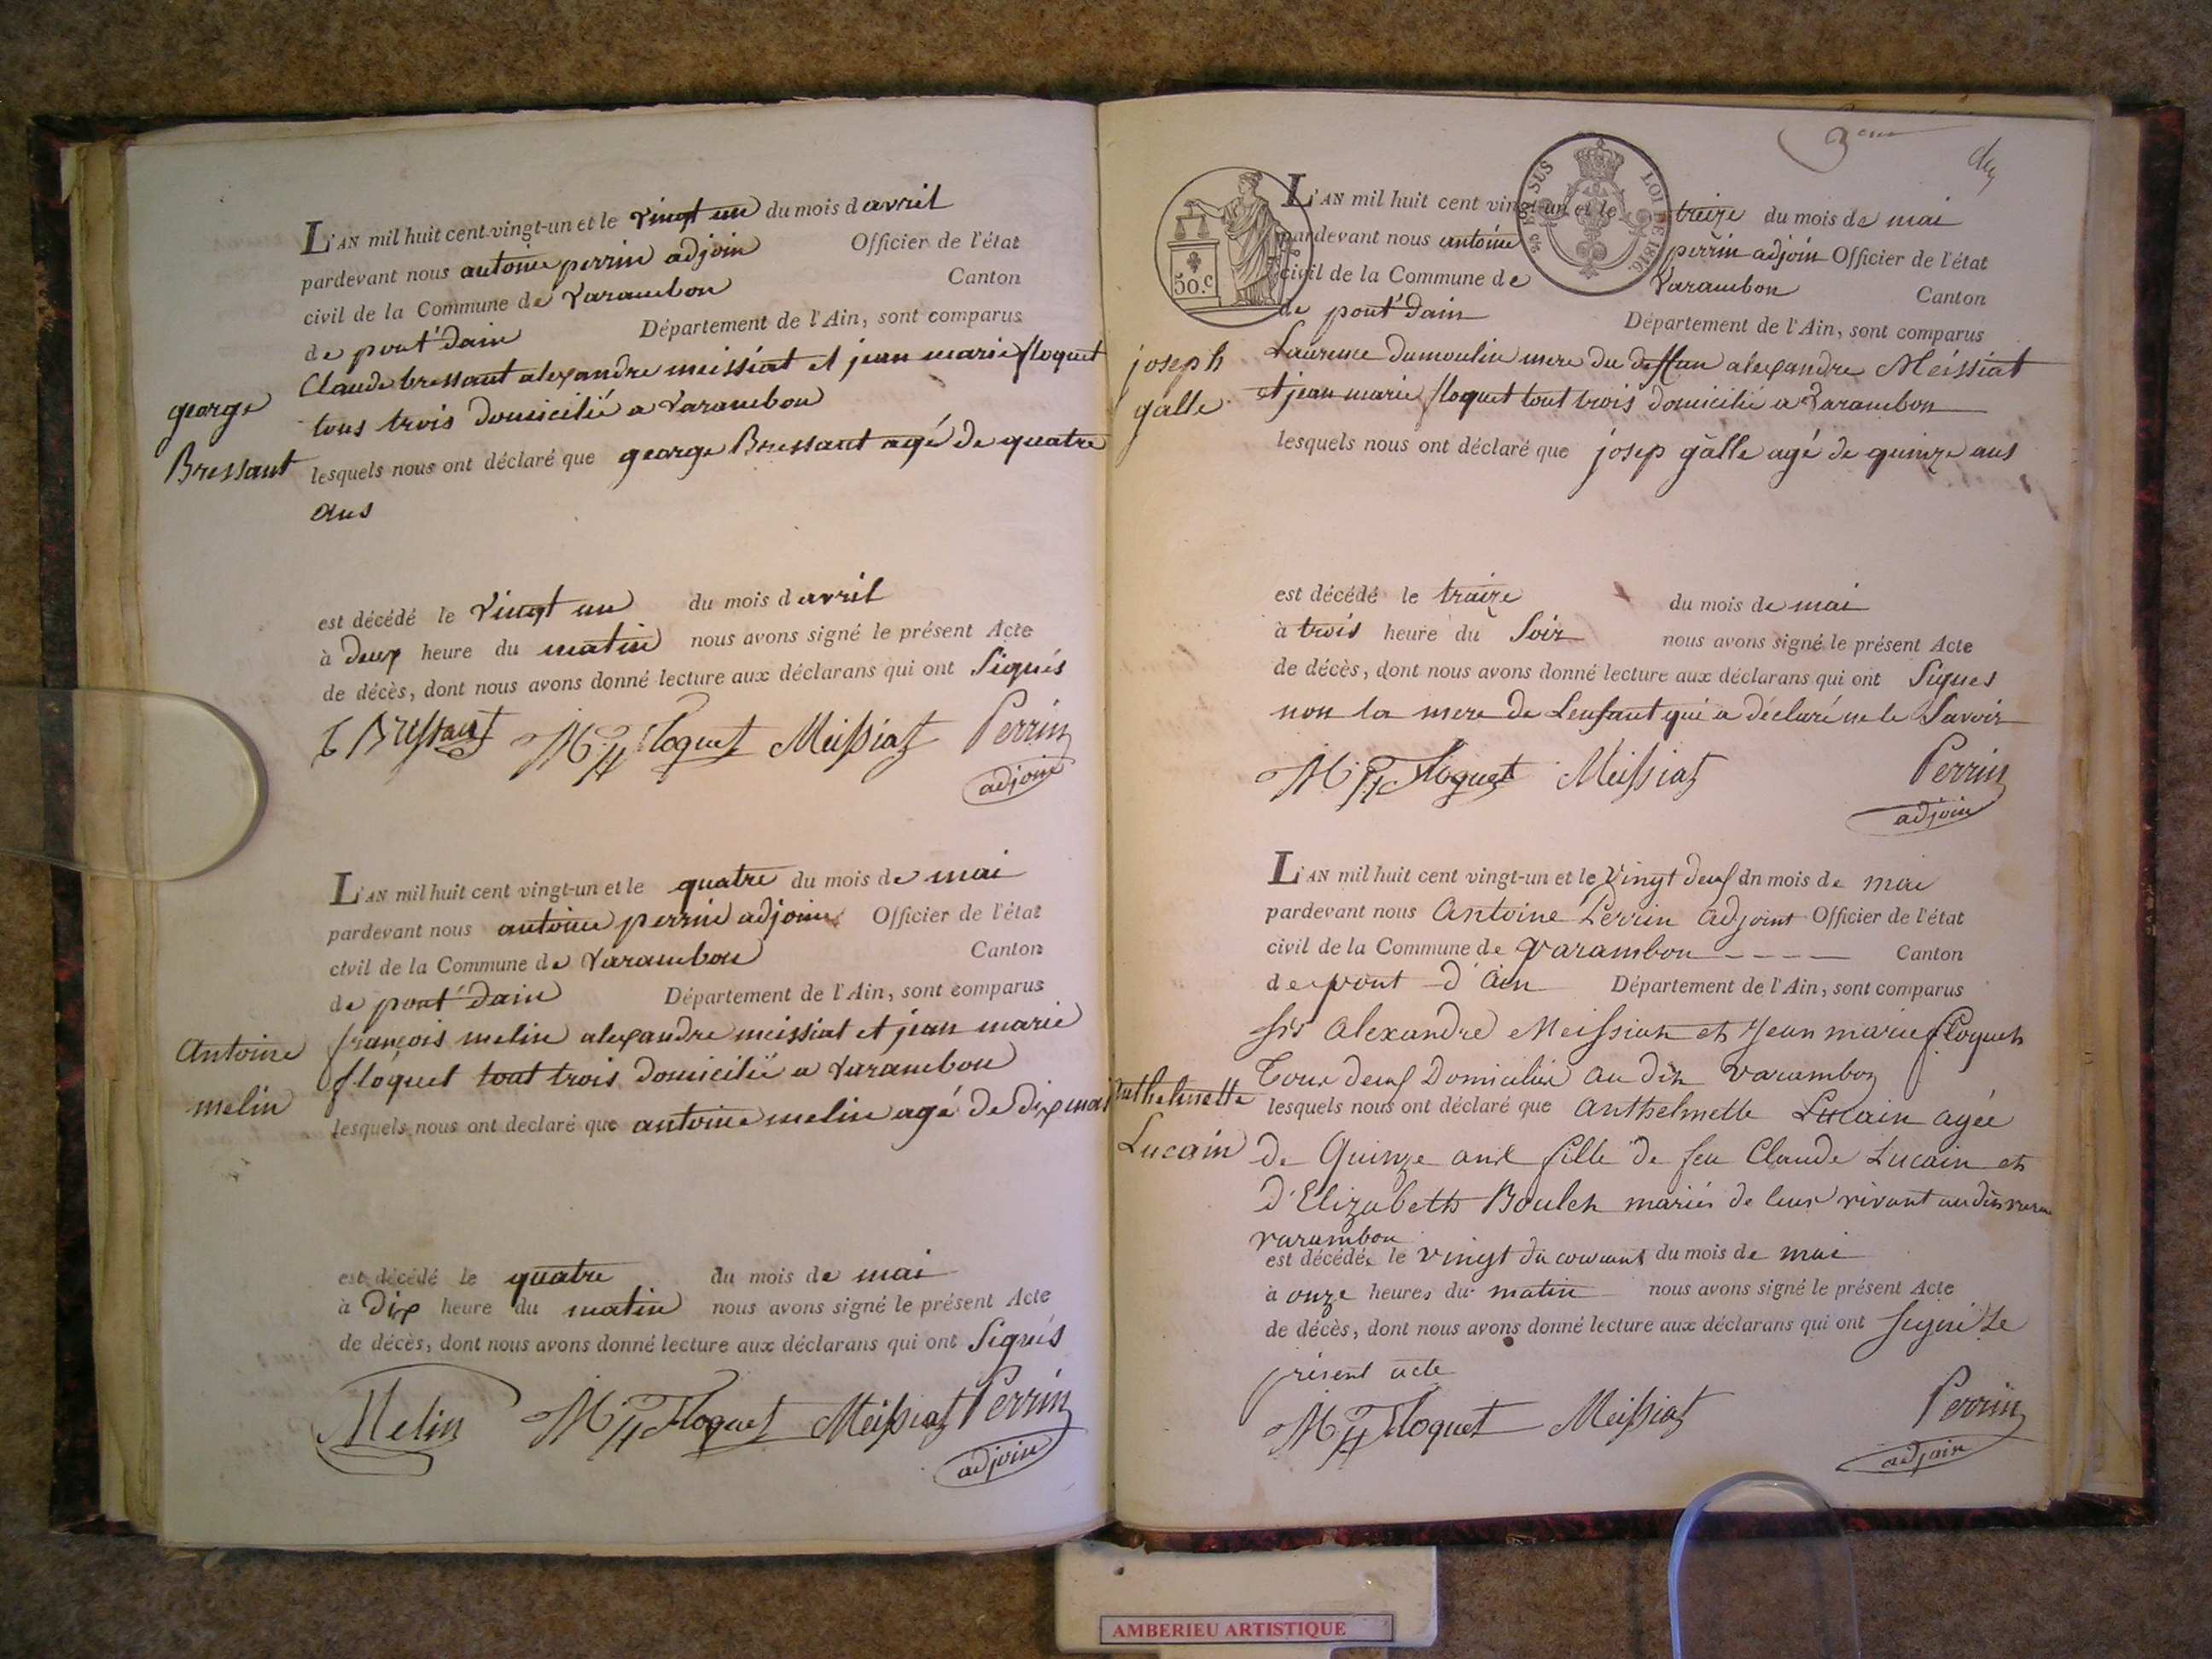 L'AN mil huit cent vingt-un et le vingt un du mois d avril
pardevant nous antoine perrin adjoin Officier de l'état
civil de la Commune de Varambon Canton
de pont'dain Département de l'Ain, sont comparus
Claude bressant alexandre meissiat et jean marie floquet
tous trois domicilié a Varambon
george
Bressant
lesquels nous ont déclaré que george Bressant agé de quatre
ans
est décédé le vingt un du mois d avril
à deux heure du matin nous avons signé le présent Acte
de décès, dont nous avons donné lecture aux déclarans qui ont Signés
Bressant Floquet Meissiat Perrin
adjoin
L'AN mil huit cent vingt-un et le quatre du mois de mai
pardevant nous antoine perrin adjoin Officier de l'état
civil de la Commune de Varambon Canton
de pont'dain Département de l'Ain, sont comparus
françois melin alexandre meissiat et jean marie
floquet tout trois domicilié a Varambon
Antoine
melin
lesquels nous ont declaré que antoine melin agé de dix mois
est décédé le quatre du mois de mai
à dix heure du matin nous avons signé le présent Acte
de décès, dont nous avons donné lecture aux déclarans qui ont Signés
Melin Floquet Meissiat Perrin
adjoin
50.c
SUS LOI DE 1816
L'AN mil huit cent vingt-un et le traize du mois de mai
pardevant nous antoine perrin adjoin Officier de l'état
civil de la Commune de Varambon Canton
de pont'dain Département de l'Ain, sont comparus
joseph
galle
Laurence dumoulin mere du deffun alexandre Meissiat
et jean marie floquet tout trois domicilié a Varambon
lesquels nous ont déclaré que josep galle agé de quinze ans
est décédé le traize du mois de mai
à trois heure du Soir nous avons signé le présent Acte
de décès, dont nous avons donné lecture aux déclarans qui ont Signes
non la mere de Lenfant qui a déclaré ne le Savoir
Floquet Meissiat Perrin
adjoin
L'AN mil huit cent vingt-un et le Vingt deux dn mois de mai
pardevant nous Antoine Perrin adjoint Officier de l'état
civil de la Commune de Varambon Canton
de pont d'Ain Département de l'Ain, sont comparus
srs Alexandre Meissiat et Jean marie floquet
Tous deux Domiciliés au dit varambon
Anthelmette
Lucain
lesquels nous ont déclaré que Anthelmette Lucain agée
de Quinze ans fille de feu Claude Lucain et
d'Elizabeth Boulet mariés de leur vivant au dit
varambon
est décédée le vingt du courant du mois de mai
à onze heures du matin nous avons signé le présent Acte
de décès, dont nous avons donné lecture aux déclarans qui ont signé Le
présent acte
Floquet Meissiat Perrin
adjoin
AMBERIEU ARTISTIQUE